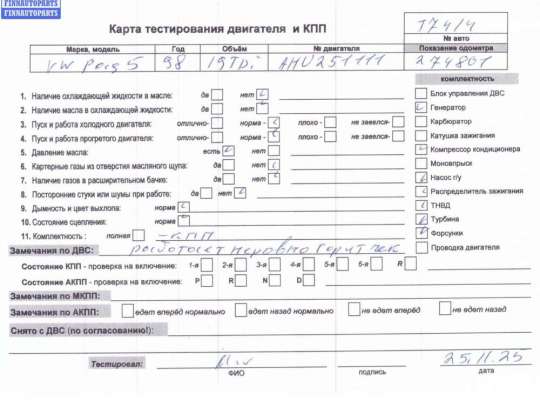 FINNAUTOPARTS
FINNAUTOPARTS
Карта тестирования двигателя и КПП
T74/4
№ авто
Марка, модель Год Объём № двигателя Показание одометра
98 1.9TDi AHU251111 274801
комплектность
1. Наличие охлаждающей жидкости в масле: да нет
2. Наличие масла в охлаждающей жидкости: да нет
3. Пуск и работа холодного двигателя: отлично- норма - плохо - не завелся-
4. Пуск и работа прогретого двигателя: отлично- норма - плохо - не завелся-
5. Давление масла: есть нет
6. Картерные газы из отверстия масляного щупа: да нет
7. Наличие газов в расширительном бачке: да нет
8. Посторонние стуки или шумы при работе: да нет
9. Дымность и цвет выхлопа: норма
10. Состояние сцепления: норма
11. Комплектность : полная -КПП
Блок управления ДВС
Генератор
Карбюратор
Катушка зажигания
Компрессор кондиционера
Моновпрыск
Насос г/у
Распределитель зажигания
ТНВД
Турбина
Форсунки
Проводка двигателя
Замечания по ДВС: работает неровно горит чек
Состояние КПП - проверка на включение: 1-я 2-я 3-я 4-я 5-я 6-я R
Состояние АКПП - проверка на включение: P R N D
Замечания по МКПП:
Замечания по АКПП: едет вперёд нормально едет назад нормально не едет вперёд не едет назад
Снято с ДВС (по согласованию!):
Тестировал: 25.11.25
ФИО подпись дата